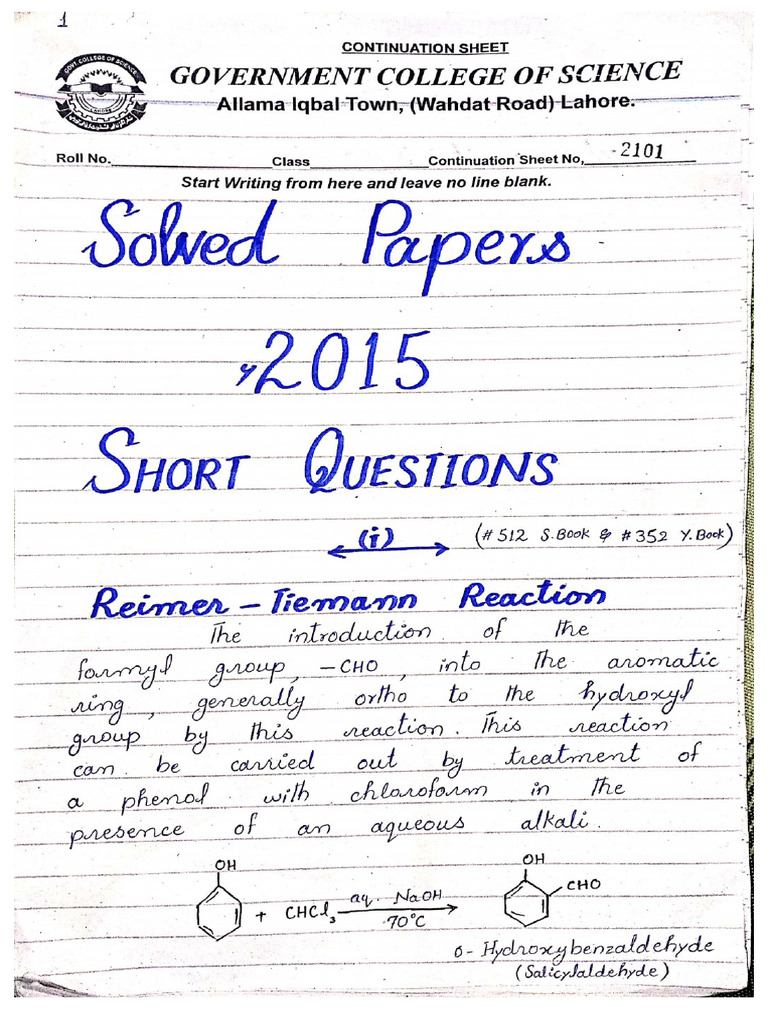 1
CONTINUATION SHEET
GOVERNMENT COLLEGE OF SCIENCE
Allama Iqbal Town, (Wahdat Road) Lahore.
Roll No. Class Continuation Sheet No, 2101
Start Writing from here and leave no line blank.
Solved Papers
2015
SHORT QUESTIONS
(i) (# 512 S.Book & # 352 Y.Book)
Reimer - Tiemann Reaction
The introduction of the
formyl group, -CHO, into the aromatic
ring, generally ortho to the hydroxyl
group by this reaction. This reaction
can be carried out by treatment of
a phenol with chloroform in the
presence of an aqueous alkali.
OH OH
CHO
+ CHCl₃ aq. NaOH
70°C
o-Hydroxybenzaldehyde
(Salicylaldehyde)